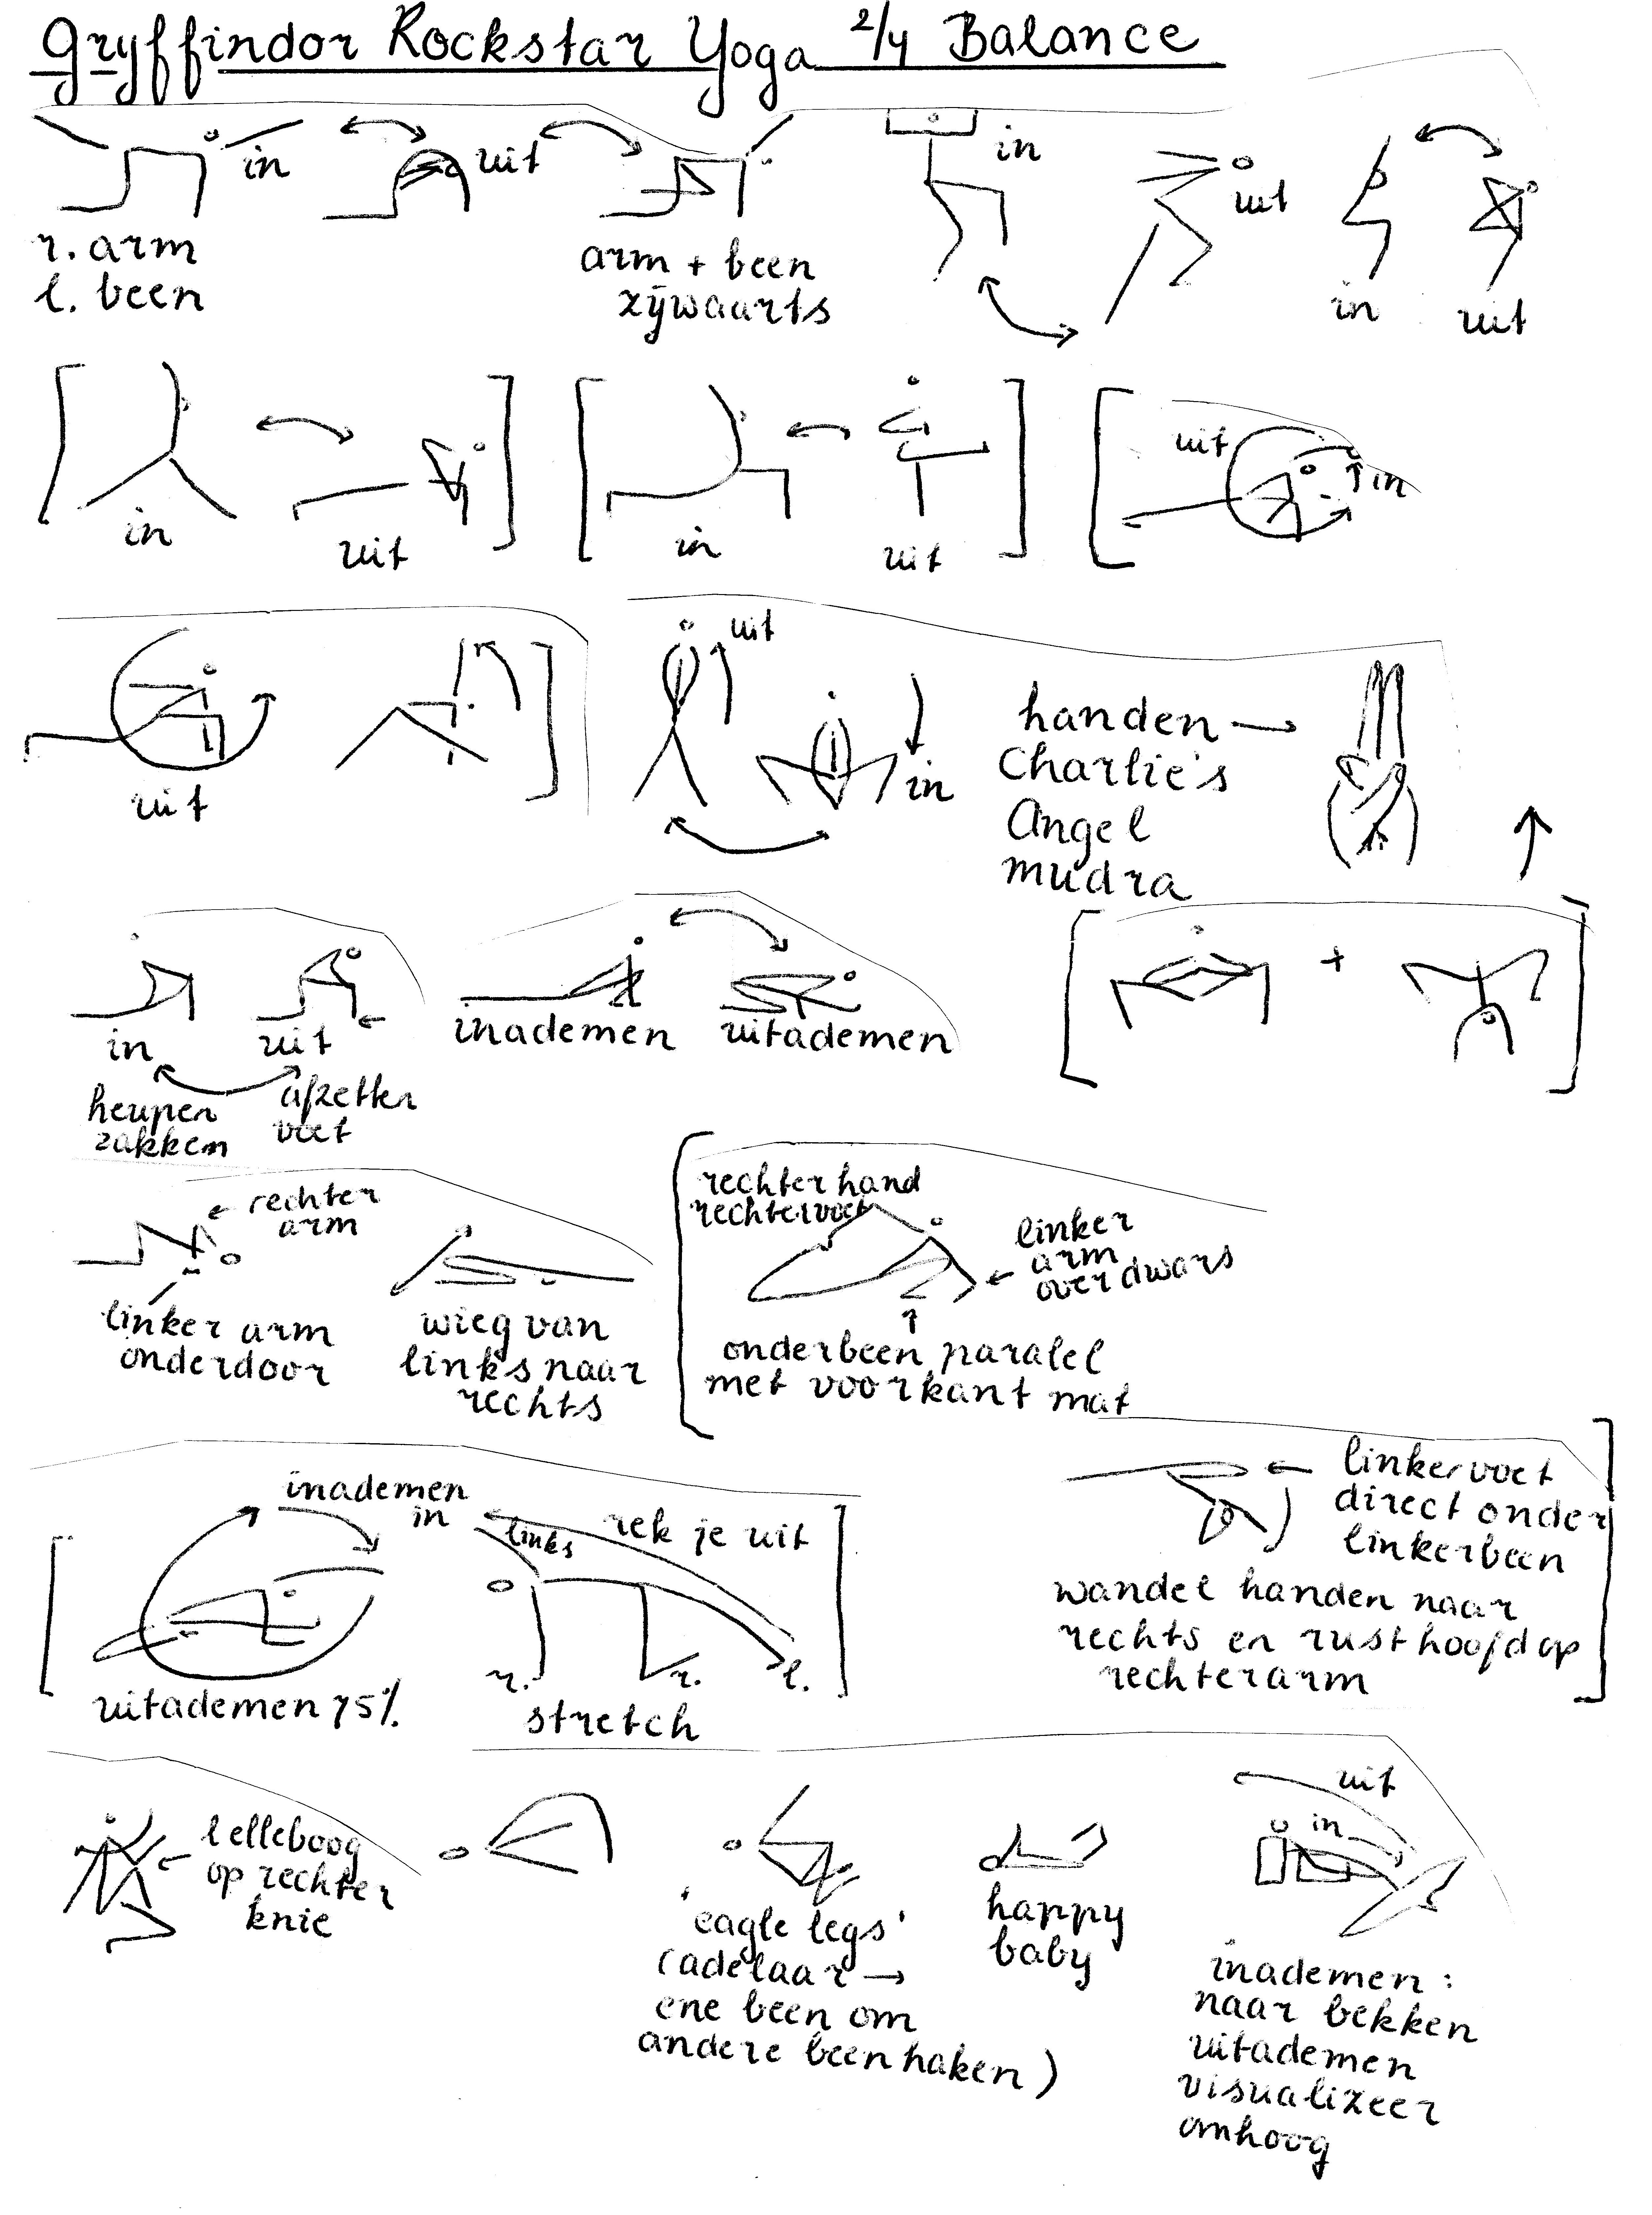 Gryffindor Rockstar Yoga 2/4 Balance
in
uit
in
uit
r. arm
l. been
arm + been
zijwaarts
in
uit
in
uit
in
uit
uit
in
uit
uit
in
handen →
Charlie's
Angel
mudra
in
uit
inademen
uitademen
heupen
zakken
afzetten
voet
rechter
arm
linker arm
onderdoor
wieg van
links naar
rechts
rechterhand
rechtervoet
linker
arm
overdwars
onderbeen paralel
met voorkant mat
inademen
in
links
rek je uit
uitademen 75%
r.
r.
l.
stretch
linkervoet
direct onder
linkerbeen
wandel handen naar
rechts en rust hoofd op
rechterarm
l elleboog
op rechter
knie
'eagle legs'
(adelaar →
ene been om
andere been haken)
happy
baby
uit
in
inademen:
naar bekken
uitademen
visualizeer
omhoog